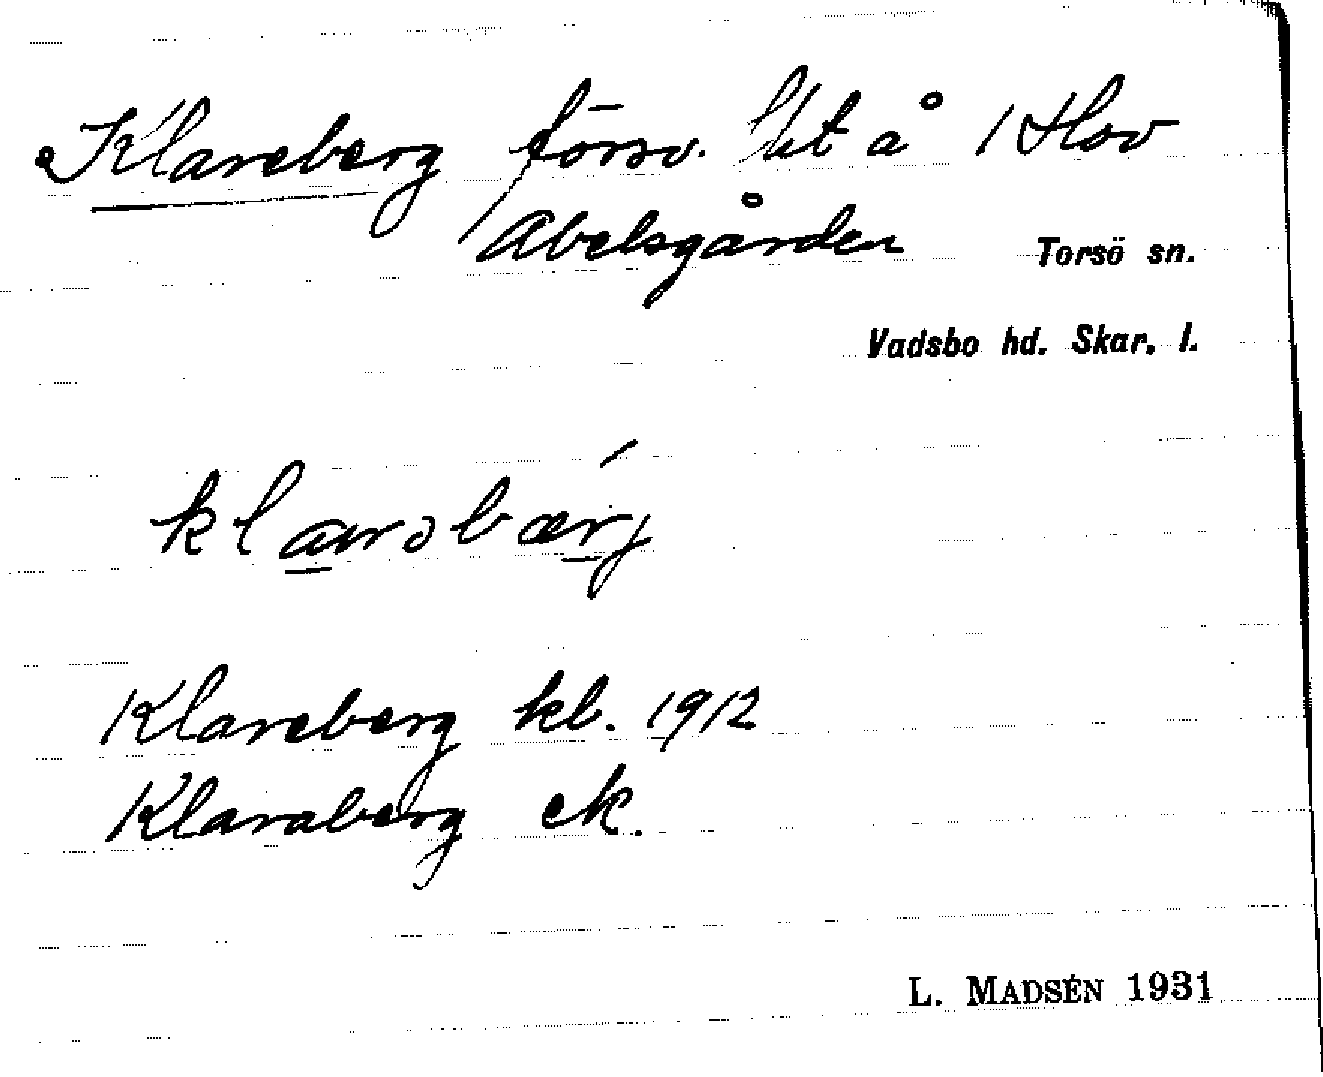 Klareberg försv. lht å 1 Hov
Abelsgården Torsö sn.
Vadsbo hd. Skar. l.
klarəbærj
Klareberg kb. 1912
Klaraberg ek.
L. MADSÉN 1931